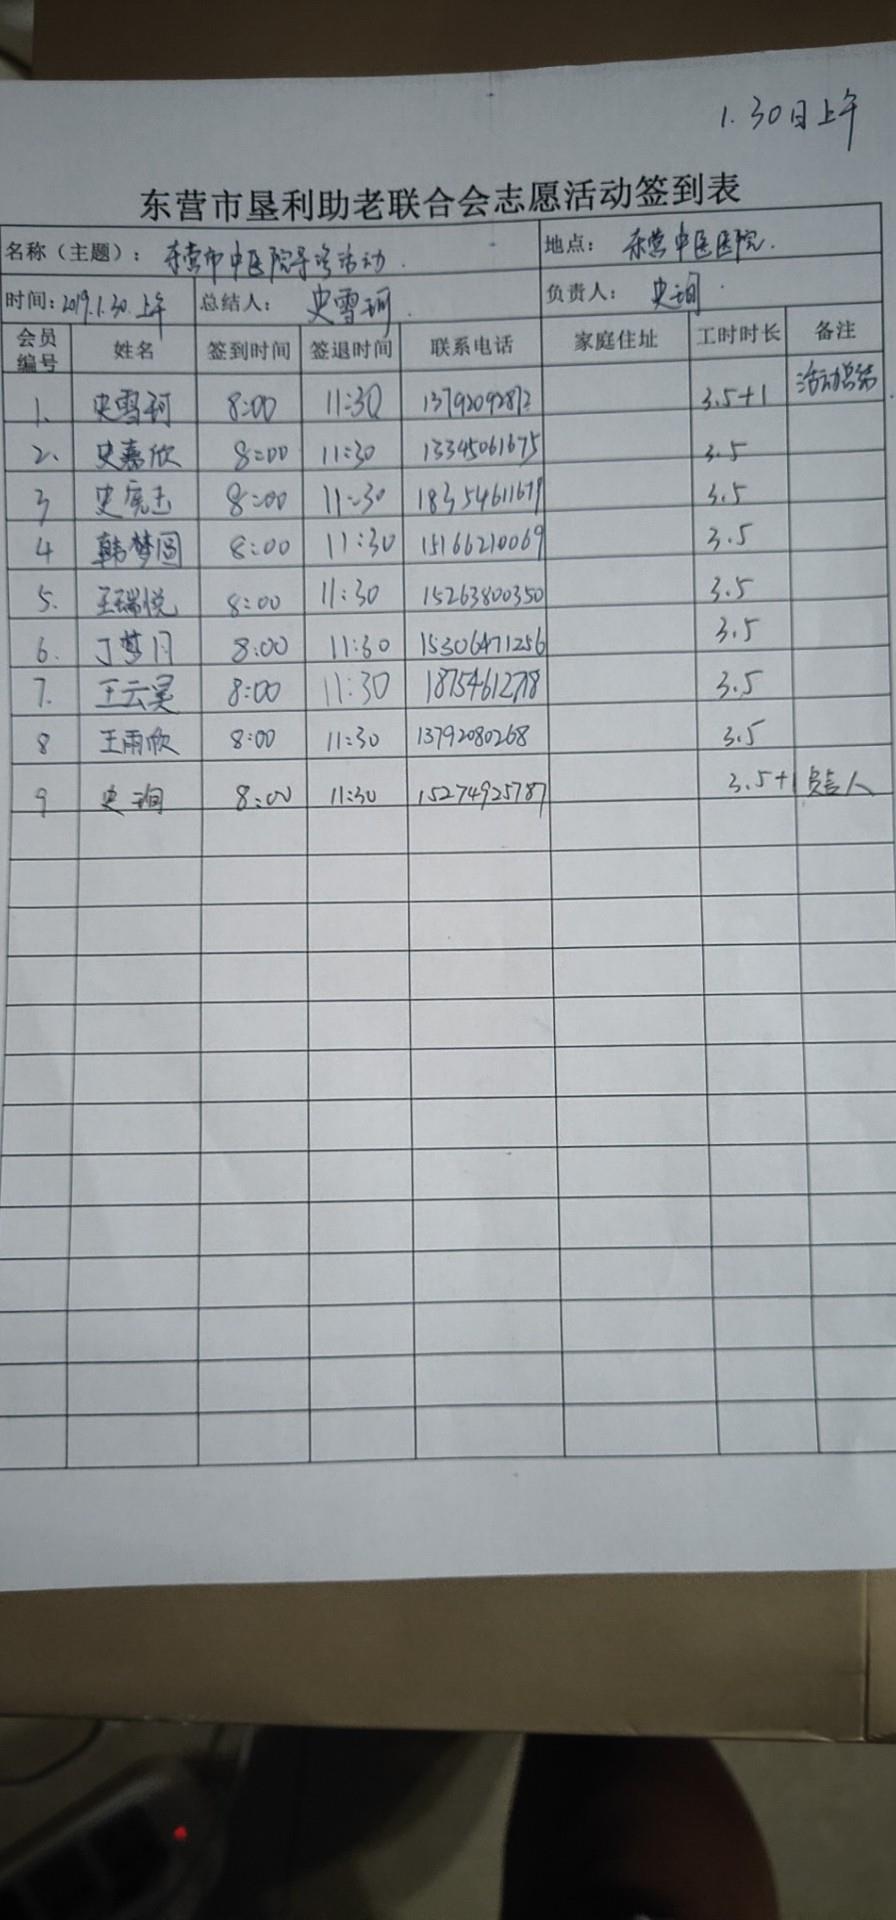 1.30日上午
东营市垦利助老联合会志愿活动签到表
名称（主题）： 东营市中医院导诊活动. 地点： 东营中医医院.
时间：2019.1.30.上午 总结人： 史雪珂. 负责人： 史珣.
会员编号 姓名 签到时间 签退时间 联系电话 家庭住址 工时时长 备注
1. 史雪珂 8:00 11:30 13792092872 3.5+1 活动总结
2. 史嘉欣 8:00 11:30 13345061675 3.5
3 史 8:00 11:30 18354611679 3.5
4 韩梦圆 8:00 11:30 15166210069 3.5
5. 王瑞悦 8:00 11:30 15263800350 3.5
6. 丁梦月 8:00 11:30 15306471256 3.5
7. 王云昊 8:00 11:30 3.5
8 王雨欣 8:00 11:30 13792080268 3.5
9 史珣 8:00 11:30 15274925787 3.5+1 负责人